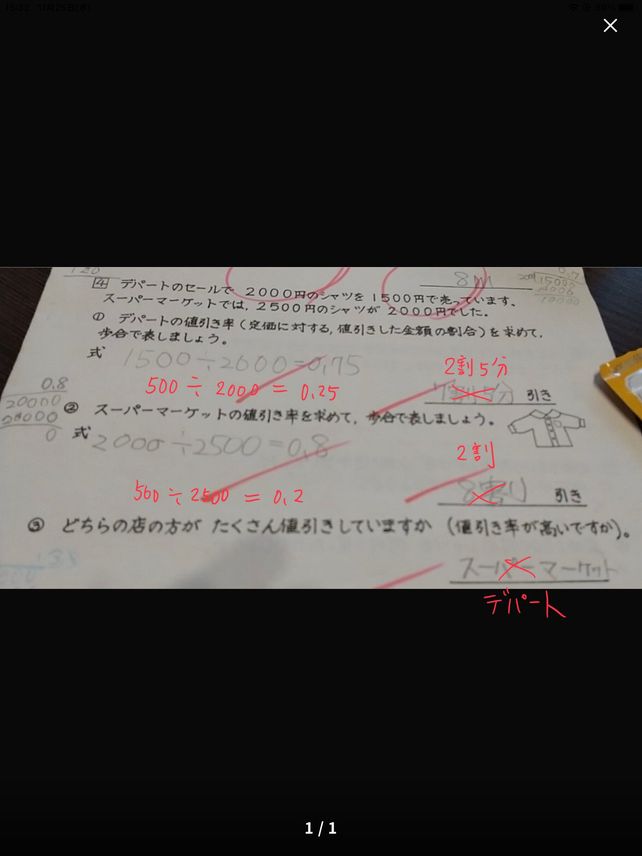 120
8m
4 デパートのセールで、2000円のシャツを1500円で売っています。
スーパーマーケットでは、2500円のシャツが2000円でした。
① デパートの値引き率(定価に対する,値引きした金額の割合)を求めて,
歩合で表しましょう。
式 1500÷2000=0.75
500 ÷ 2000 = 0.25
2割5分
7割5分 引き
0.8
20000
20000
0
② スーパーマーケットの値引き率を求めて,歩合で表しましょう。
式 2000÷2500=0.8
500 ÷ 2500 = 0.2
2割
8割 引き
③ どちらの店の方が たくさん値引きしていますか (値引き率が高いですか)。
スーパーマーケット
デパート
1 / 1